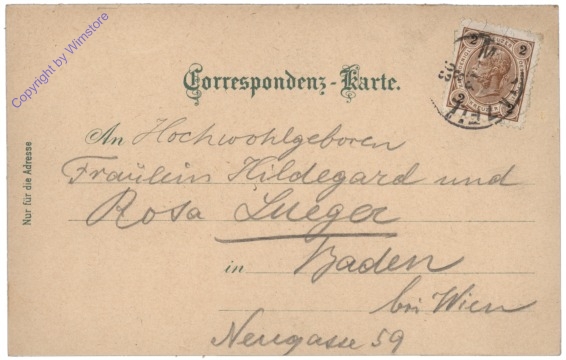 Copyright by Wimstore
2 2
Correspondenz-Karte.
Nur für die Adresse
An Hochwohlgeboren
Fräulein Hildegard und
Rosa Lueger
in Baden
bei Wien
Neugasse 59